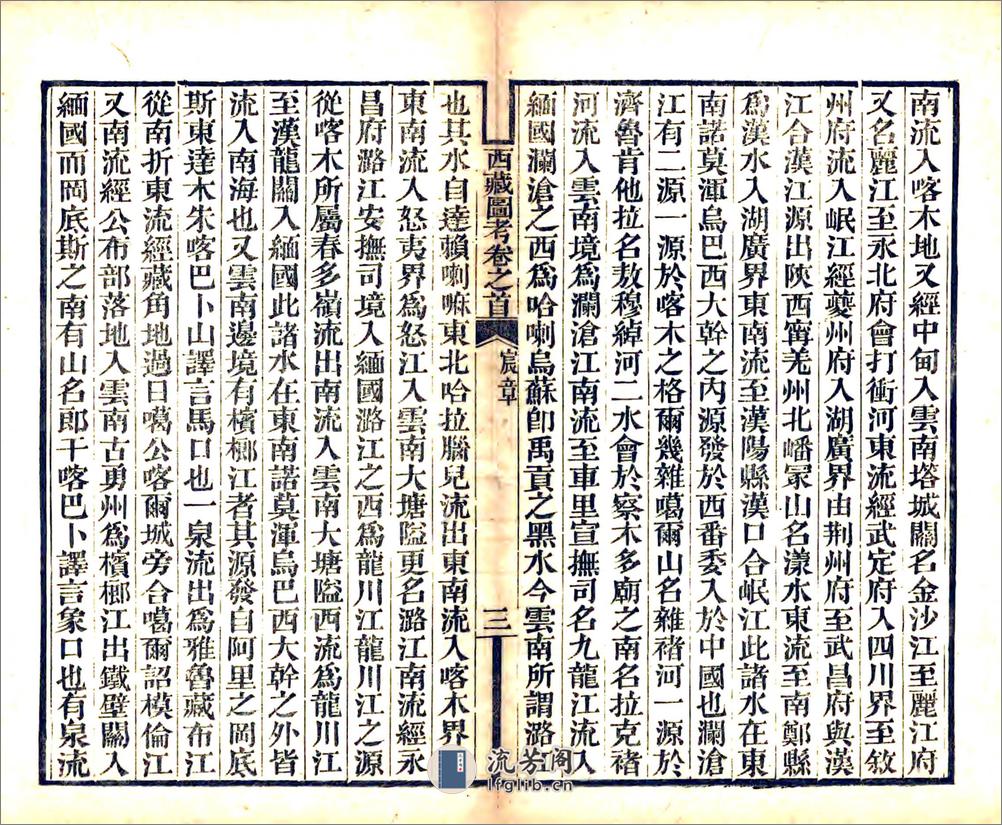 南流入喀木地又經中甸入雲南塔城關名金沙江至麗江府
又名麗江至永北府會打衝河東流經武定府入四川界至敘
州府流入岷江經夔州府入湖廣界由荆州府至武昌府與漢
江合漢江源出陝西甯羌州北嶓冢山名漾水東流至南鄭縣
爲漢水入湖廣界東南流至漢陽縣漢口合岷江此諸水在東
南諾莫渾烏巴西大幹之内源發於西番委入於中國也瀾滄
江有二源一源於喀木之格爾幾雜噶爾山名雜褚河一源於
濟魯肯他拉名敖穆綽河二水會於察木多廟之南名拉克褚
河流入雲南境爲瀾滄江南流至車里宣撫司名九龍江流入
緬國瀾滄之西爲哈喇烏蘇卽禹貢之黑水今雲南所謂潞江
西藏圖考卷之首
宸章
三
也其水自達賴喇嘛東北哈拉腦兒流出東南流入喀木界
東南流入怒夷界爲怒江入雲南大塘隘更名潞江南流經永
昌府潞江安撫司境入緬國潞江之西爲龍川江龍川江之源
從喀木所屬春多嶺流出南流入雲南大塘隘西流爲龍川江
至漢龍關入緬國此諸水在東南諾莫渾烏巴西大幹之外皆
流入南海也又雲南邊境有檳榔江者其源發自阿里之岡底
斯東達木朱喀巴卜山譯言馬口也一泉流出爲雅魯藏布江
從南折東流經藏角地過日噶公喀爾城旁合噶爾詔模倫江
又南流經公布部落地入雲南古勇州爲檳榔江出鐵壁關入
緬國而岡底斯之南有山名郎千喀巴卜譯言象口也有泉流
流芳閣
lfglib.cn